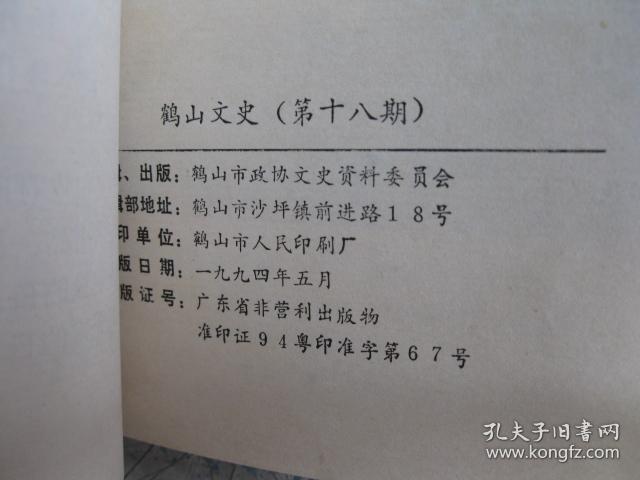 鹤山文史（第十八期）
、出版：鹤山市政协文史资料委员会
辑部地址：鹤山市沙坪镇前进路18号
印单位：鹤山市人民印刷厂
版日期：一九九四年五月
版证号：广东省非营利出版物
准印证94粤印准字第67号
孔夫子旧书网
www.kongfz.com